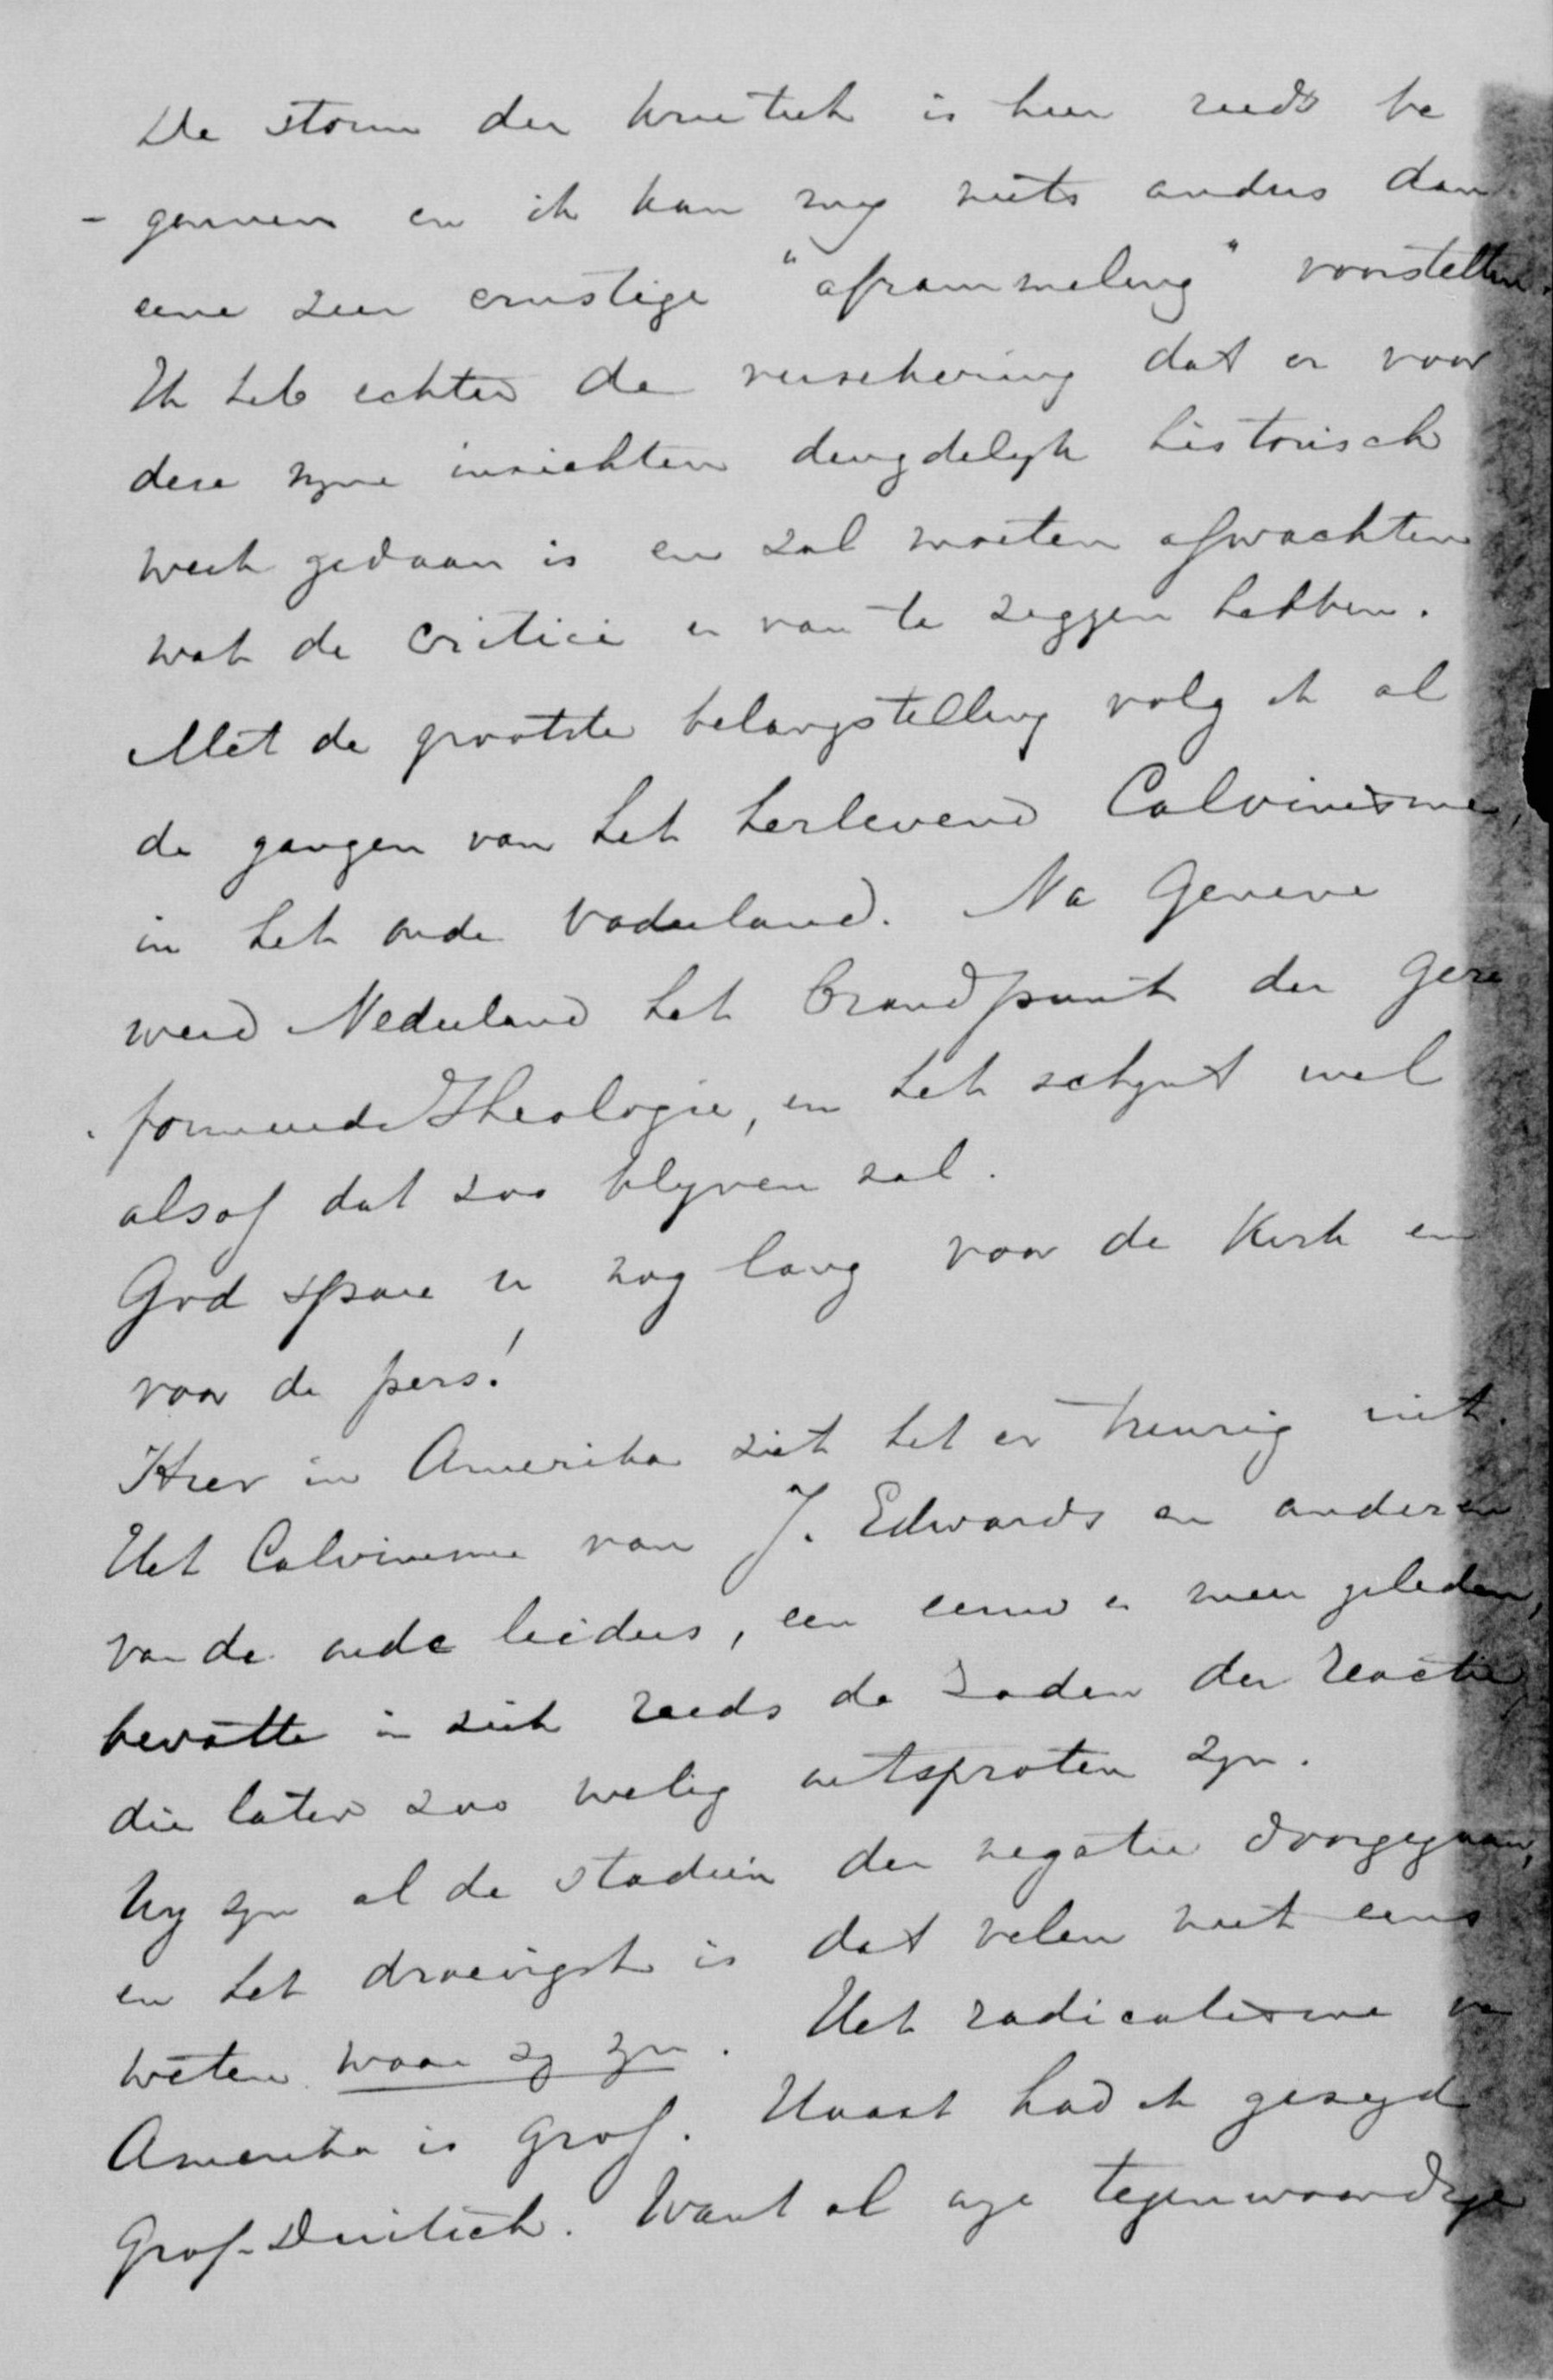 De storm der kritiek is hier reeds be
- gonnen en ik kan mij niets anders dan
eene zeer ernstige "aframmeling" voorstellen.
Ik heb echter de verzekering dat er voor
deze mijne inzichten deugdelijk historisch
werk gedaan is en zal moeten afwachten
wat de critici er van te zeggen hebben.
Met de grootste belangstelling volg ik al
de gangen van het herlevend Calvinisme,
in het oude vaderland. Na Geneve
werd Nederland het brandpunt der Gere
formeerde Theologie, en het schijnt wel
alsof dat zoo blijven zal.
God spare u nog lang voor de Kerk en
voor de pers!
Hier in Amerika ziet het er treurig uit.
Het Calvinisme van J. Edwards en anderen
van de oude leiders, een eeuw en meer geleden,
bevatte in zich reeds de zaden der reactie,
die later zoo welig ontsproten zijn.
Wij zijn al de stadiën der negatie doorgegaan,
en het droevigst is dat velen niet eens
weten waar zij zijn. Het radicalisme van
Amerika is grof. Haast had ik gezegd
Grof-Duitsch. Want al onze tegenwoordige